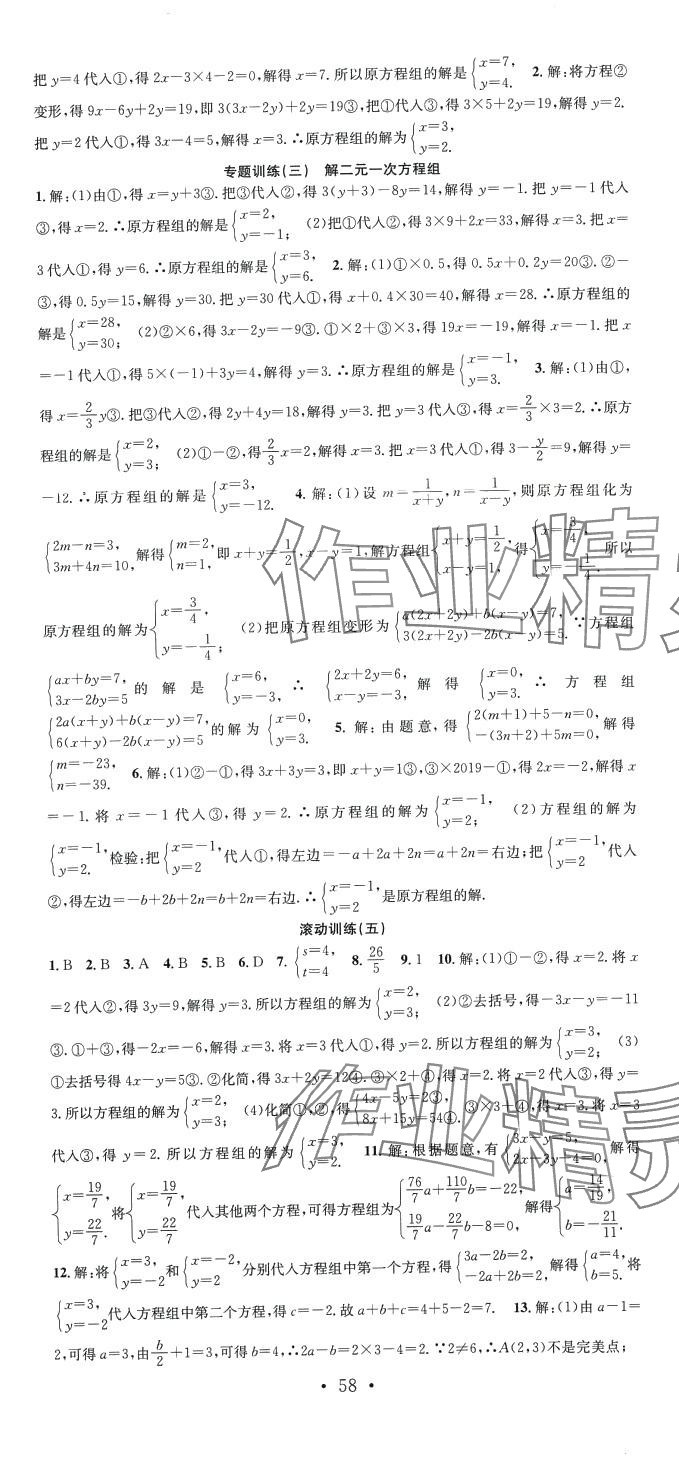 把 y=4 代入①,得 2x-3×4-2=0,解得 x=7. 所以原方程组的解是{x=7, y=4. 2. 解:将方程②
变形,得 9x-6y+2y=19,即 3(3x-2y)+2y=19③,把①代入③,得 3×5+2y=19,解得 y=2.
把 y=2 代入①,得 3x-4=5,解得 x=3. ∴原方程组的解为{x=3, y=2.
专题训练(三) 解二元一次方程组
1. 解:(1)由①,得 x=y+3③. 把③代入②,得 3(y+3)-8y=14,解得 y=-1. 把 y=-1 代入
③,得 x=2. ∴原方程组的解是{x=2, y=-1; (2)把①代入②,得 3×9+2x=33,解得 x=3. 把 x=
3 代入①,得 y=6. ∴原方程组的解是{x=3, y=6. 2. 解:(1)①×0.5,得 0.5x+0.2y=20③. ②-
③,得 0.5y=15,解得 y=30. 把 y=30 代入①,得 x+0.4×30=40,解得 x=28. ∴原方程组的
解是{x=28, y=30; (2)②×6,得 3x-2y=-9③. ①×2+③×3,得 19x=-19,解得 x=-1. 把 x
=-1 代入①,得 5×(-1)+3y=4,解得 y=3. ∴原方程组的解是{x=-1, y=3. 3. 解:(1)由①,
得 x=2/3 y③. 把③代入②,得 2y+4y=18,解得 y=3. 把 y=3 代入③,得 x=2/3×3=2. ∴原方
程组的解是{x=2, y=3; (2)①-②,得 2/3 x=2,解得 x=3. 把 x=3 代入①,得 3-y/2=9,解得 y=
-12. ∴原方程组的解是{x=3, y=-12. 4. 解:(1)设 m=1/(x+y),n=1/(x-y),则原方程组化为
{2m-n=3, 3m+4n=10, 解得{m=2, n=1, 即 x+y=1/2,x-y=1,解方程组{x+y=1/2, x-y=1, 得{x=3/4, y=-1/4. 所以
原方程组的解为{x=3/4, y=-1/4; (2)把原方程组变形为{a(2x+2y)+b(x-y)=7, 3(2x+2y)-2b(x-y)=5. ∵方程组
{ax+by=7, 3x-2by=5 的解是{x=6, y=-3, ∴{2x+2y=6, x-y=-3, 解得{x=0, y=3. ∴方程组
{2a(x+y)+b(x-y)=7, 6(x+y)-2b(x-y)=5 的解为{x=0, y=3. 5. 解:由题意,得{2(m+1)+5-n=0, -(3n+2)+5m=0, 解得
{m=-23, n=-39. 6. 解:(1)②-①,得 3x+3y=3,即 x+y=1③,③×2019-①,得 2x=-2,解得 x
=-1. 将 x=-1 代入③,得 y=2. ∴原方程组的解为{x=-1, y=2; (2)方程组的解为
{x=-1, y=2. 检验:把{x=-1, y=2 代入①,得左边=-a+2a+2n=a+2n=右边;把{x=-1, y=2 代入
②,得左边=-b+2b+2n=b+2n=右边. ∴{x=-1, y=2 是原方程组的解.
滚动训练(五)
1. B 2. B 3. A 4. B 5. B 6. D 7. {s=4, t=4 8. 26/5 9. 1 10. 解:(1)①-②,得 x=2. 将 x
=2 代入②,得 3y=9,解得 y=3. 所以方程组的解为{x=2, y=3; (2)②去括号,得-3x-y=-11
③. ①+③,得-2x=-6,解得 x=3. 将 x=3 代入①,得 y=2. 所以方程组的解为{x=3, y=2; (3)
①去括号得 4x-y=5③. ②化简,得 3x+2y=12④. ③×2+④,得 x=2. 将 x=2 代入③,得 y=
3. 所以方程组的解为{x=2, y=3; (4)化简①,②,得{4x-5y=2③, 8x+15y=54④. ③×3+④,得 x=3. 将 x=3
代入③,得 y=2. 所以方程组的解为{x=3, y=2. 11. 解:根据题意,有{3x-y=5, 2x-3y-4=0, 解得
{x=19/7, y=22/7. 将{x=19/7, y=22/7. 代入其他两个方程,可得方程组为{76/7 a+110/7 b=-22, 19/7 a-22/7 b-8=0, 解得{a=14/19, b=-21/11.
12. 解:将{x=3, y=-2 和{x=-2, y=2 分别代入方程组中第一个方程,得{3a-2b=2, -2a+2b=2, 解得{a=4, b=5. 将
{x=3, y=-2 代入方程组中第二个方程,得 c=-2. 故 a+b+c=4+5-2=7. 13. 解:(1)由 a-1=
2,可得 a=3,由 b/2+1=3,可得 b=4,∴2a-b=2×3-4=2. ∵2≠6,∴A(2,3)不是完美点;
• 58 •
作业精灵
作业精灵